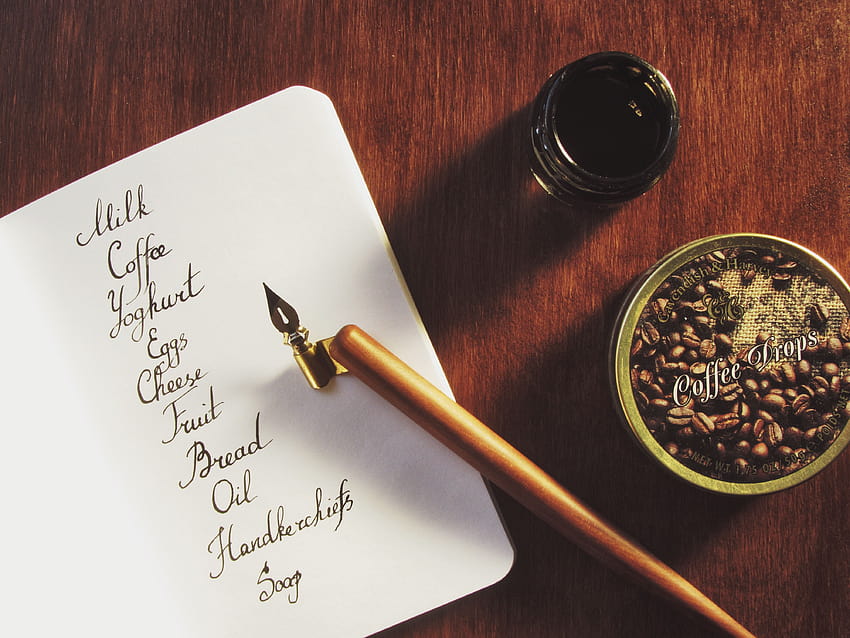 Milk
Coffee
Yoghurt
Eggs
Cheese
Fruit
Bread
Oil
Handkerchiefs
Soap
Cavendish & Harvey
Coffee Drops
NET. WT. 1.75 OZ